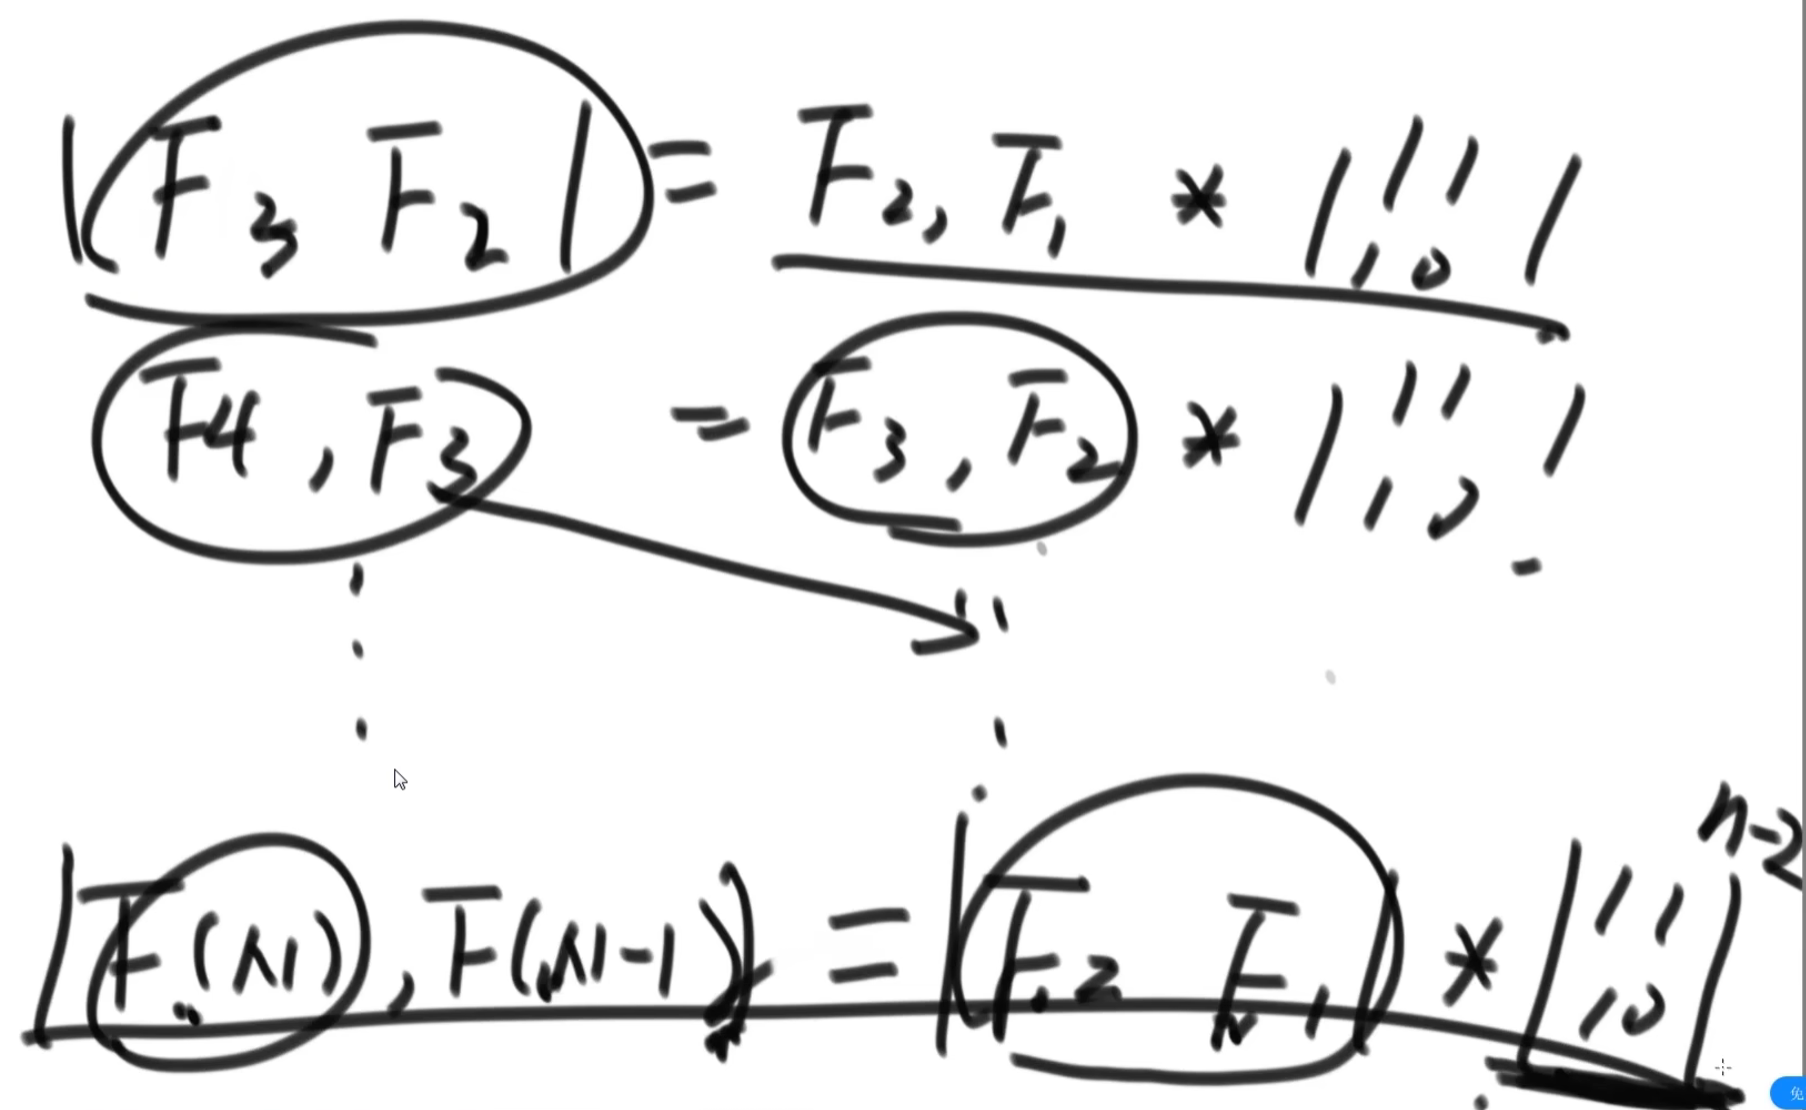 | F3 F2 | = F2, F1 * | 1 1 |
| 1, 0 |
F4, F3 = F3, F2 * | 1 1 |
| 1, 0 |
n-2
| F(n), F(n-1) | = | F2 F1 | * | 1 1 |
| 1 0 |
免